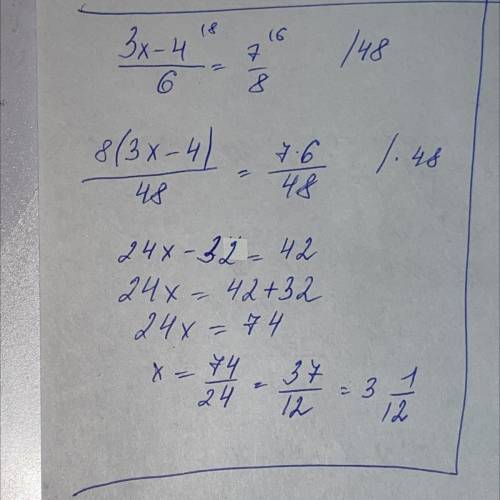 3x-4 (8 / 6 = 7 (6 / 8 /48
8(3x-4) / 48 = 7·6 / 48 /·48
24x-32=42
24x=42+32
24x=74
x=74/24=37/12=3 1/12